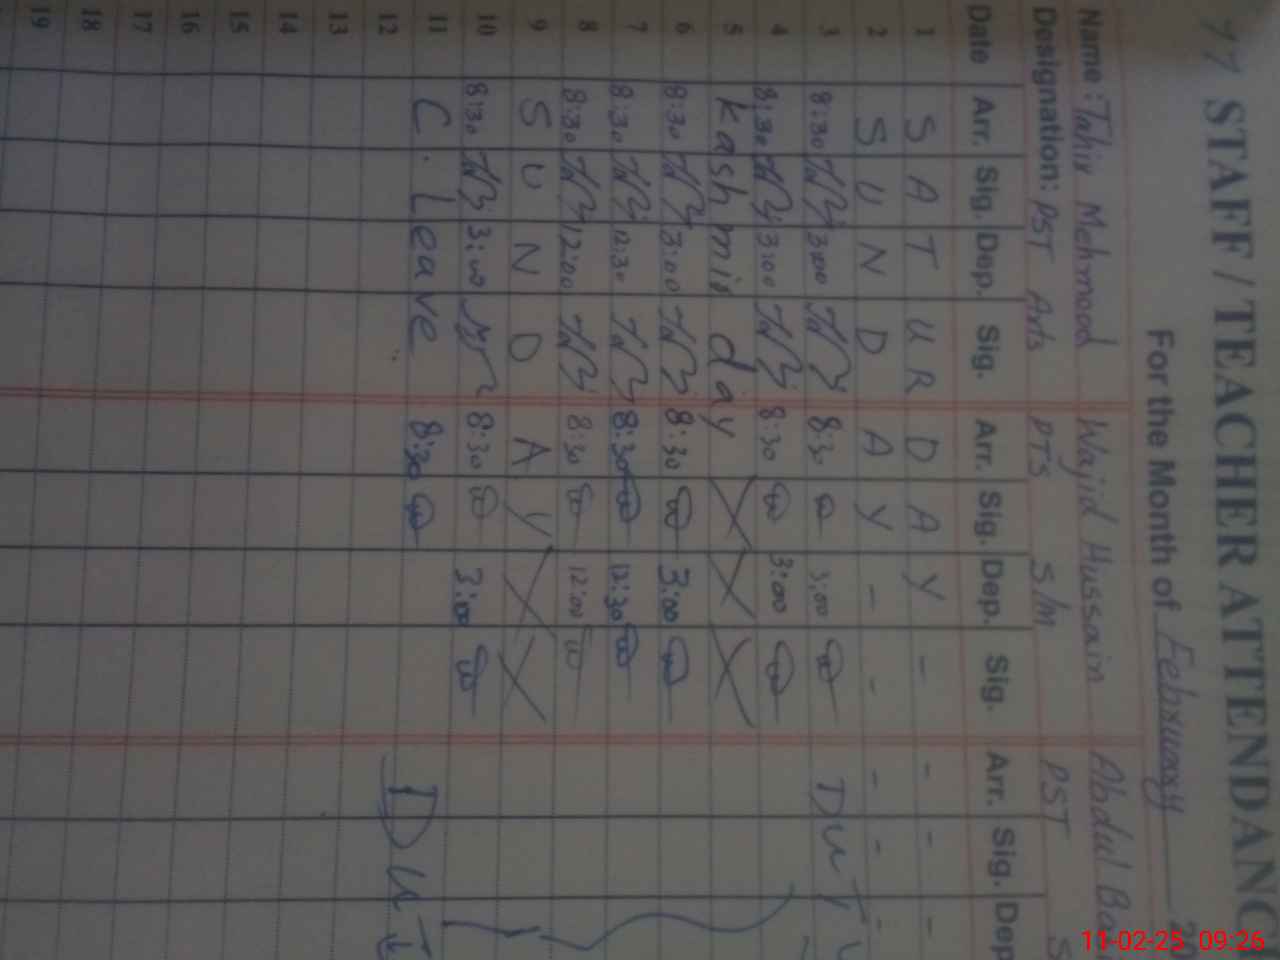 77 STAFF / TEACHER ATTENDANC
For the Month of February 20
Name: Tahir Mehmood Wajid Hussain Abdul
Designation: PST Arts PTS S/m PST S
Date Arr. Sig. Dep. Sig. Arr. Sig. Dep. Sig. Arr. Sig. Dep
1 S A T U R D A Y - - - -
2 S U N D A Y - - - - -
3 8:30 3:00 8:30 3:00 DUT
4 8:30 3:00 8:30 3:00
5 Kashmir day
6 8:30 3:00 8:30 3:00
7 8:30 12:30 8:30 12:30
8 8:30 12:00 8:30 12:00
9 S U N D A Y
10 8:30 3:00 8:30 3:00
11 C. Leave 8:30
12 DUT
13
14
15
16
17
18
19
11-02-25 09:26